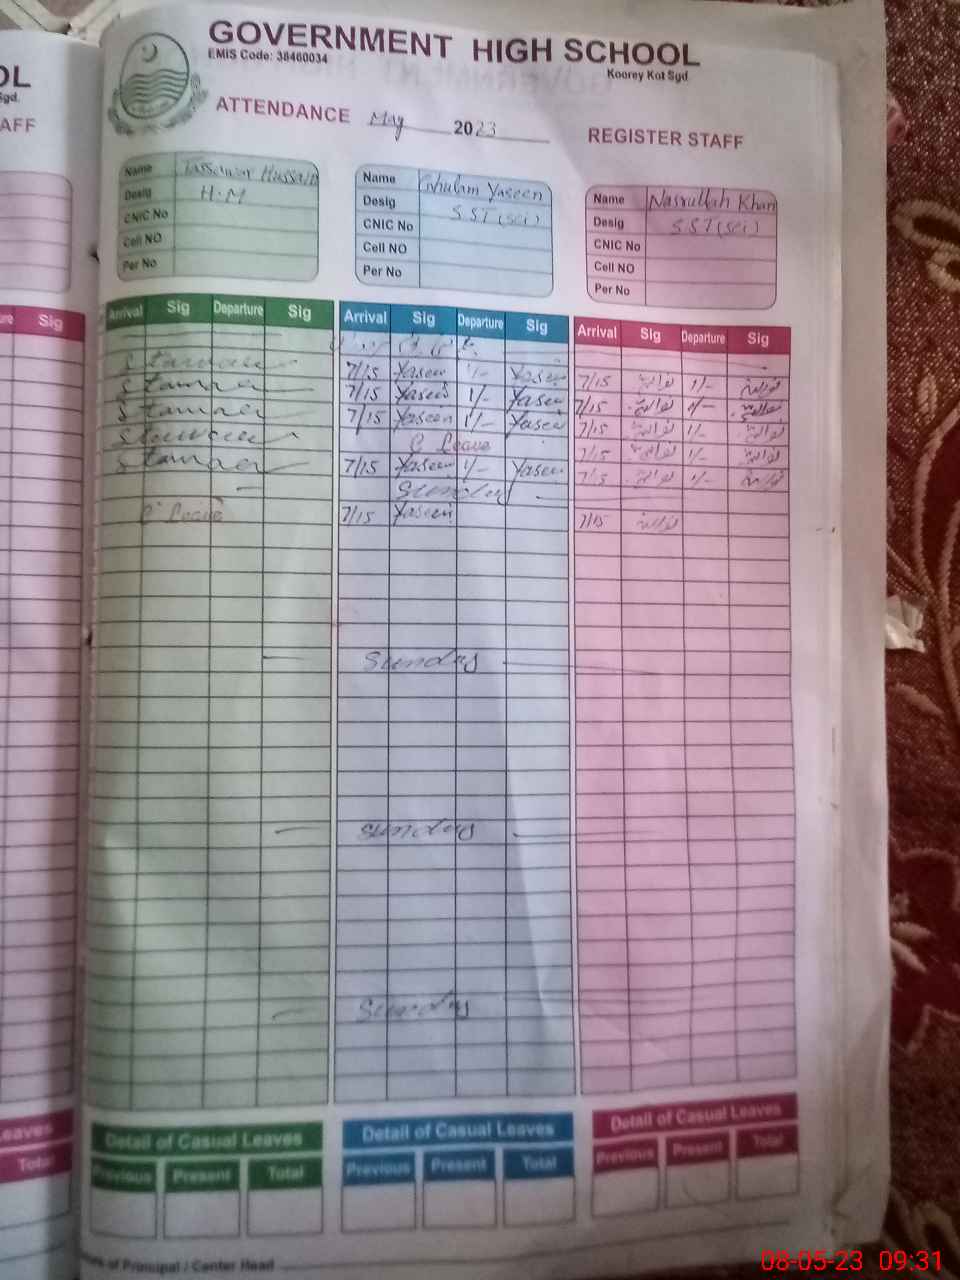 GOVERNMENT HIGH SCHOOL
EMIS Code: 38460034
Koorey Kot Sgd.
OL
Sgd.
AFF
ATTENDANCE May 2023 REGISTER STAFF
Name Tassawar Hussain
Desig H.M
CNIC No
Cell NO
Per No
Name Ghulam Yaseen
Desig SST(sci)
CNIC No
Cell NO
Per No
Name Nasrullah Khan
Desig SST(sci)
CNIC No
Cell NO
Per No
Sig
Arrival Sig Departure Sig Arrival Sig Departure Sig Arrival Sig Departure Sig
7/15 Yaseen 1/- Yaseen 7/15 1/-
7/15 Yaseen 1/- Yaseen 7/15 1/-
7/15 Yaseen 1/- Yaseen 7/15 1/-
C Leave 7/15 1/-
7/15 Yaseen 1/- Yaseen 7/15 1/-
Sunday
C Leave 7/15 Yaseen 7/15
Sunday
Sunday
Sunday
Leaves
Total
Detail of Casual Leaves
Previous Present Total
Detail of Casual Leaves
Previous Present Total
Detail of Casual Leaves
Previous Present Total
of Principal / Center Head
08-05-23 09:31